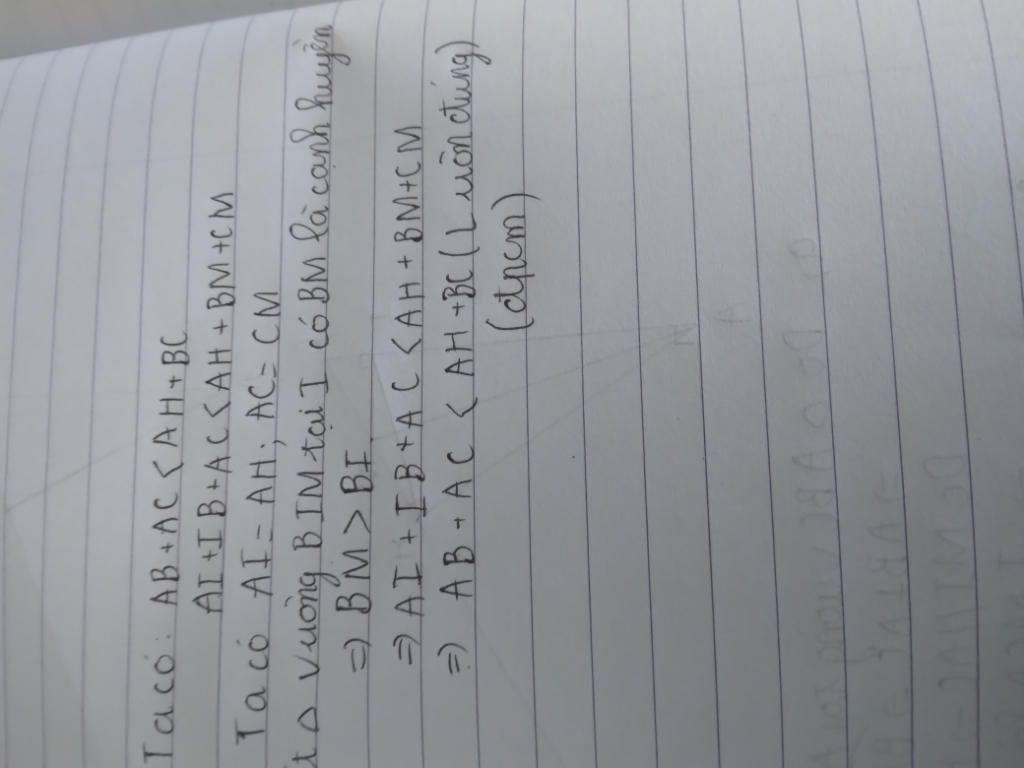 Ta có: AB+AC < AH+BC
AI+IB+AC < AH+BM+CM
Ta có AI=AH; AC=CM
t △ vuông BIM tại I có BM là cạnh huyền
=) BM > BI
=) AI+IB+AC < AH+BM+CM
=) AB+AC < AH+BC (Luôn đúng)
(đpcm)